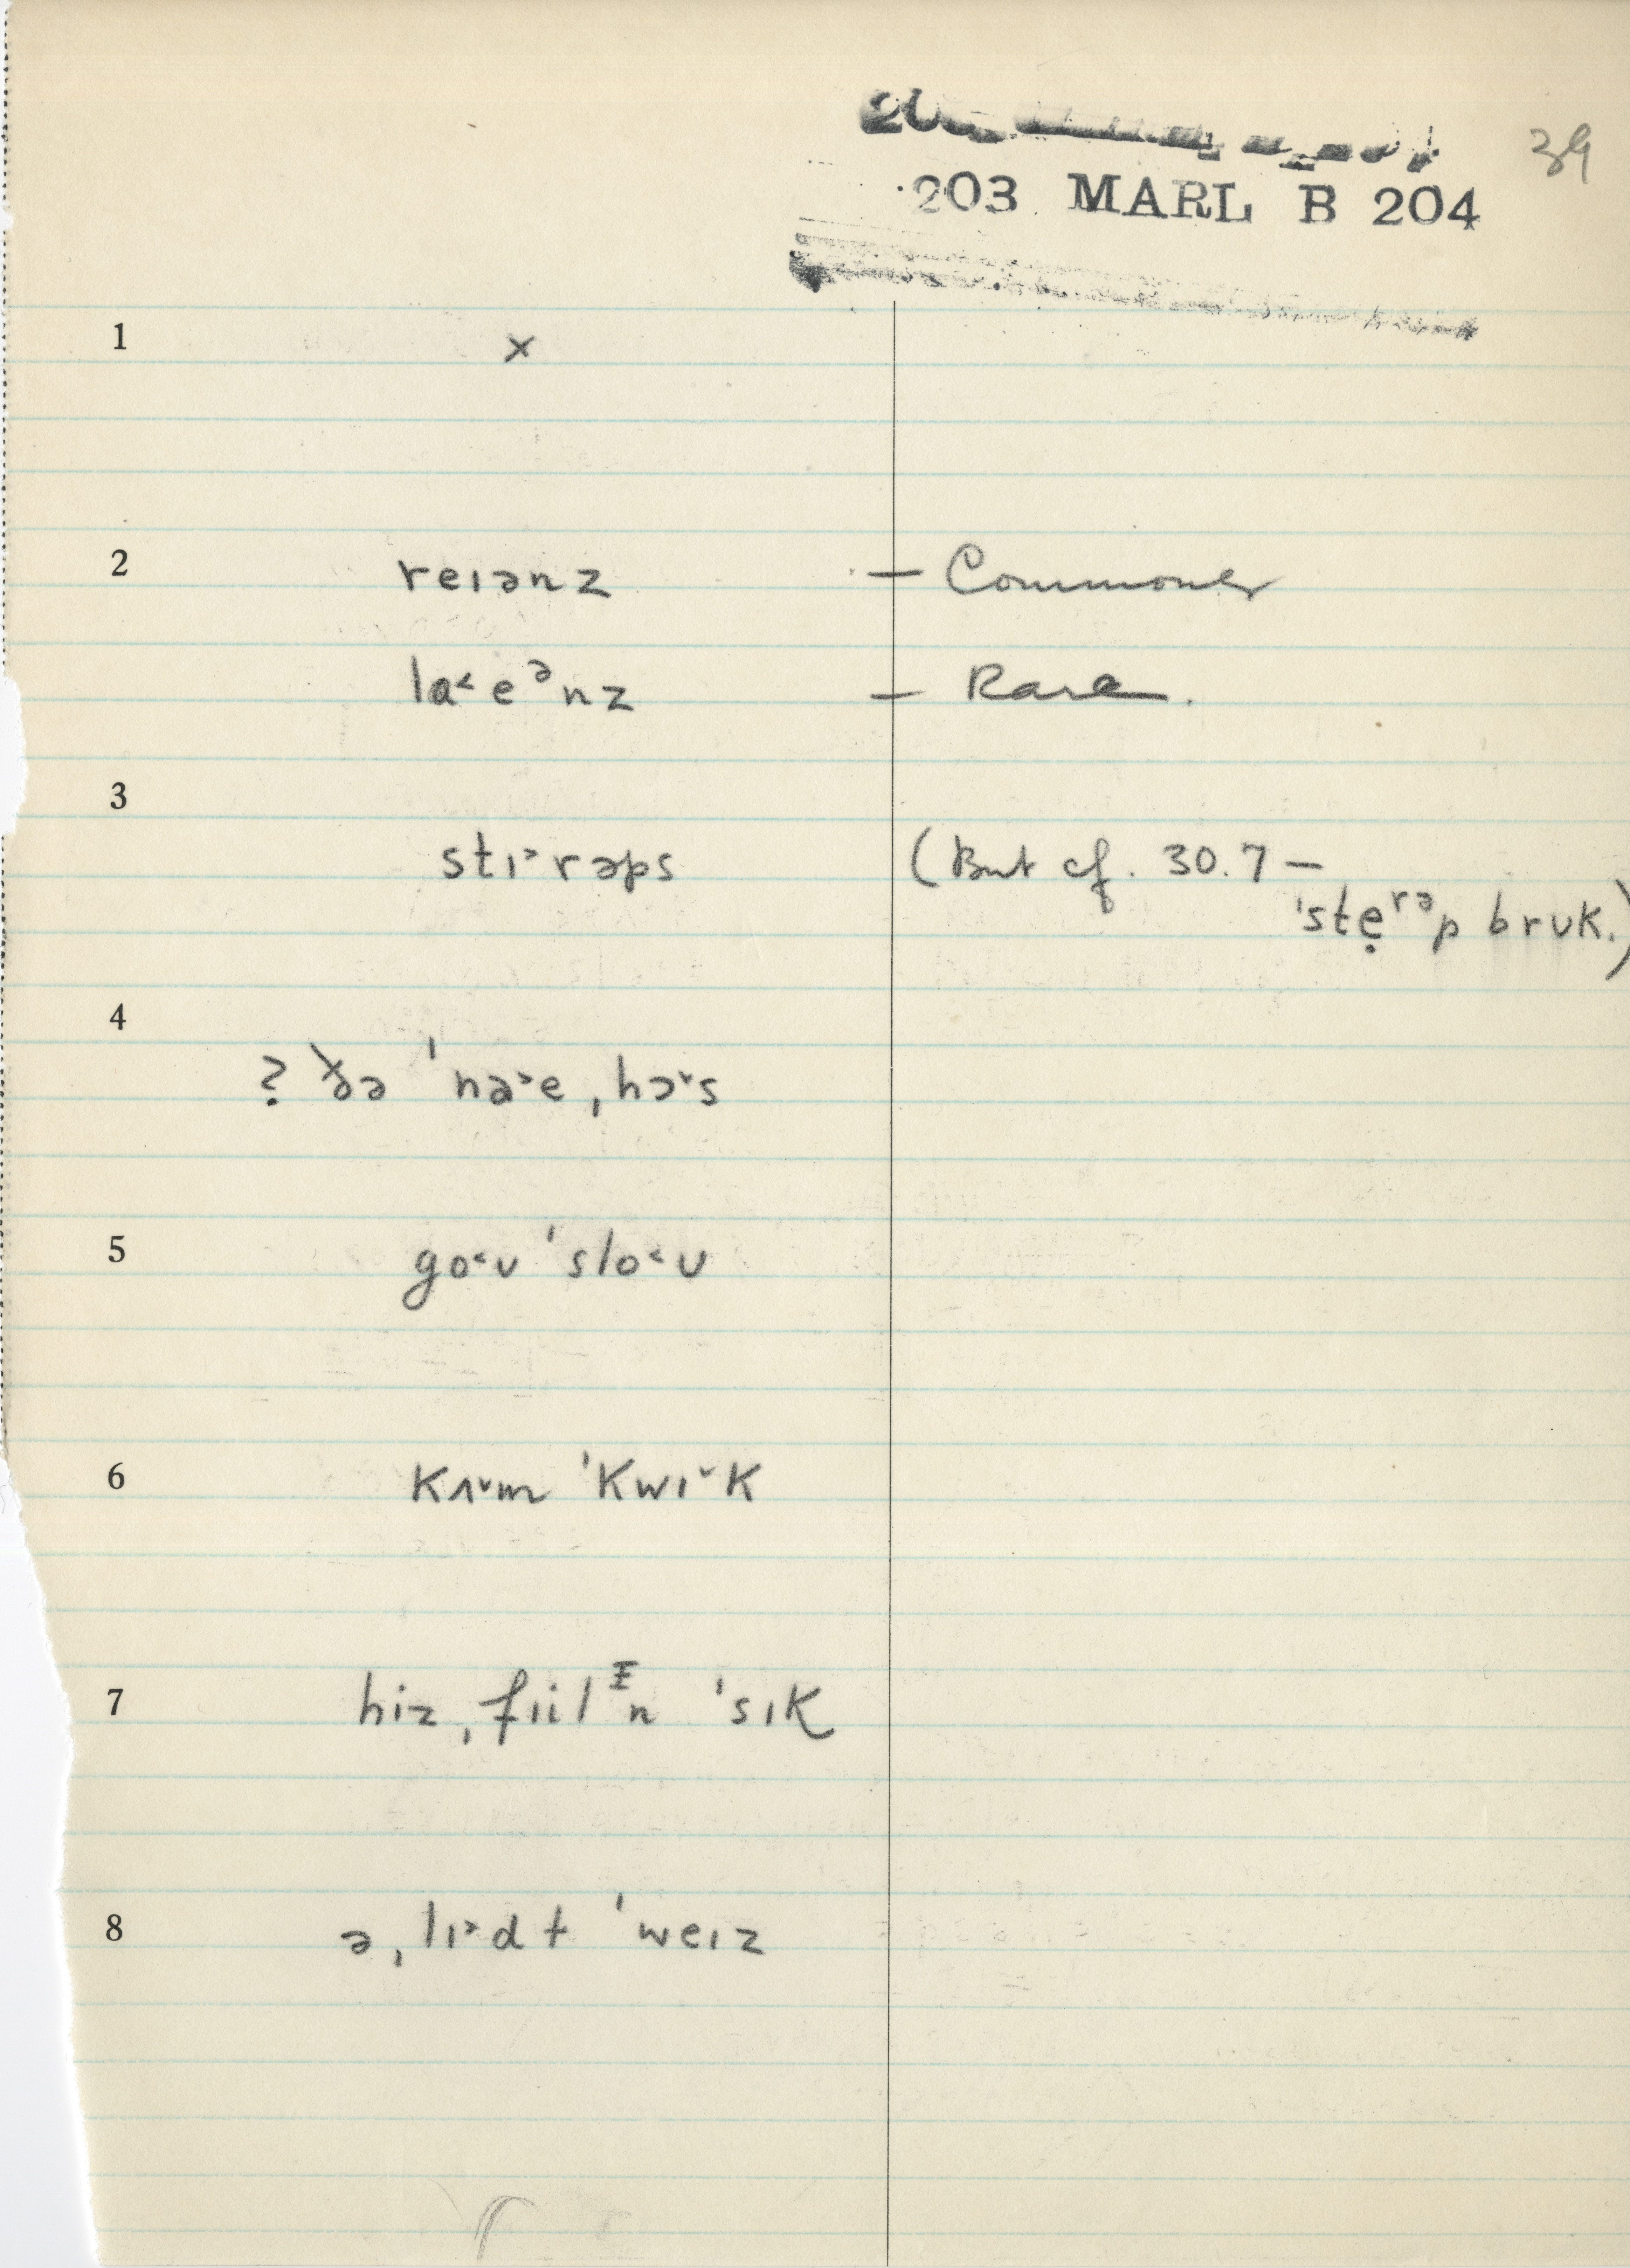 39
203 MARL B 204
1 x
2 reɪənz — Commoner
la˂eᵊnz — Rare.
3 stɪ˃rəps (But cf. 30.7 —
ˈstẹʳᵊp brʊk.)
4 ? ðə ˈna˃e ˌhɔ˅s
5 go˂ʊ ˈslo˂ʊ
6 kʌ˅m ˈkwɪ˅k
7 hiz ˌfɪilᶧn ˈsɪk
8 ə ˌlɪ˃dt ˈweɪz